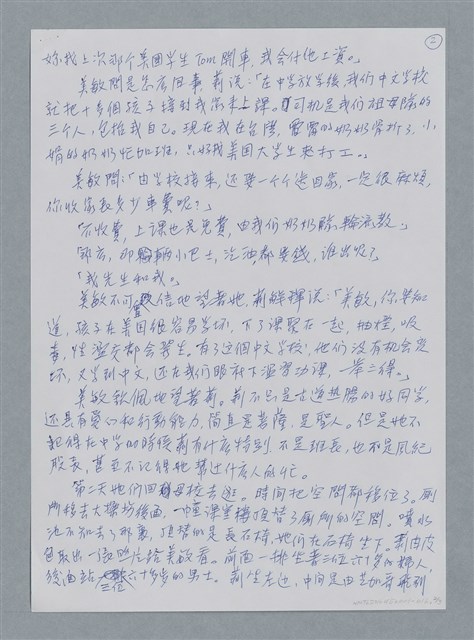 ②
妳找上次那个美国学生Tom開車,我会付他工資。」
美敏問是怎么回事,莉説:「在中学放学後,我們中文学校
就把十多個孩子接到我當来上課。司机是我们祖母隊的
三个人,包括我自己。現在我在台灣,雲霄的奶奶骨折了,小
娟的奶奶忙加班,只好找美国大学生来打工。」
美敏問:「由学校接来,还要一个个送回家,一定很麻煩,
你收家長多少車費呢?」
「不收費,上課也是免費,由我们奶奶隊輪流教。」
「那麼,那輛小巴士,汽油都要錢,誰出呢?」
「我先生和我。」
美敏不可置信地望着她,莉解釋説:「美敏,你要知
道,孩子在美国很容易学坏,下了課聚在一起,抽煙,吸
毒,性濫交都会發生。有了这個中文学校,他们没有机会变
坏,又学到中文,还在我们眼前下溫習功課,一举三得。」
美敏欽佩地望著莉。莉不只是古道熱腸的好同学,
还具有愛心和行動能力,简直是菩薩,是聖人。但是她不
記得在中学的時候莉有什么特别,不是班長,也不是風紀
股長,甚至不记得她幫过什么人的忙。
第二天她们回母校去逛。時间把空間都移位了。厠
所移去大操场後面,一座課室樓頂替了厠所的空間。噴水
池不知去了那裏,頂替的是長石椅,她们在石椅坐下。莉由皮
包取出一張照片给美敏看。前面一排坐着三位六十多的婦人,
後面站三位六十多岁的男士。莉坐左边,中间是由芝加哥飛到